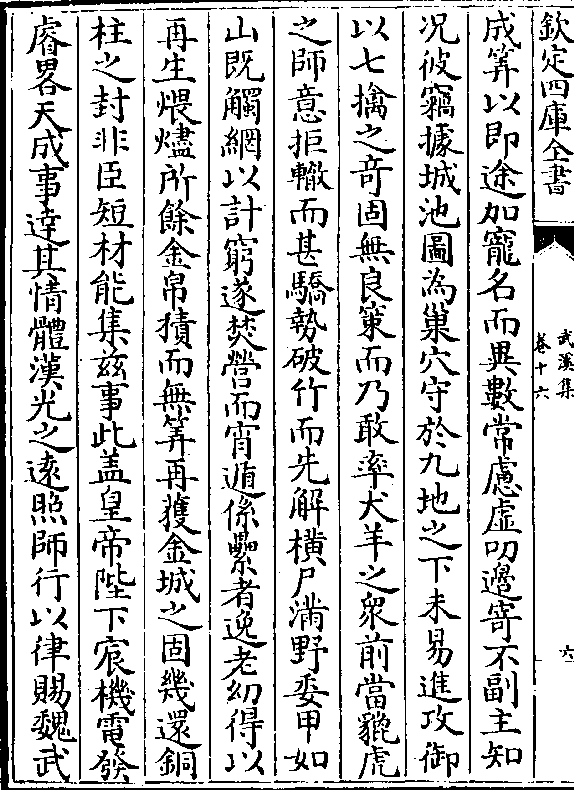 欽定四庫全書
武溪集
卷十六
六
成筭以即途加寵名而異數常慮虚叨邊寄不副主知
况彼竊據城池圖為巢穴守於九地之下未易進攻御
以七擒之竒固無良䇿而乃敢率犬羊之衆前當貔虎
之師意拒轍而甚驕勢破竹而先解橫尸滿野委甲如
山既觸網以計窮遂焚營而宵遁係纍者逸老幼得以
再生煨燼所餘金帛積而無筭再獲金城之固幾還銅
柱之封非臣短材能集兹事此盖皇帝陛下宸機電發
睿畧天成事達其情體漢光之遠照師行以律賜魏武